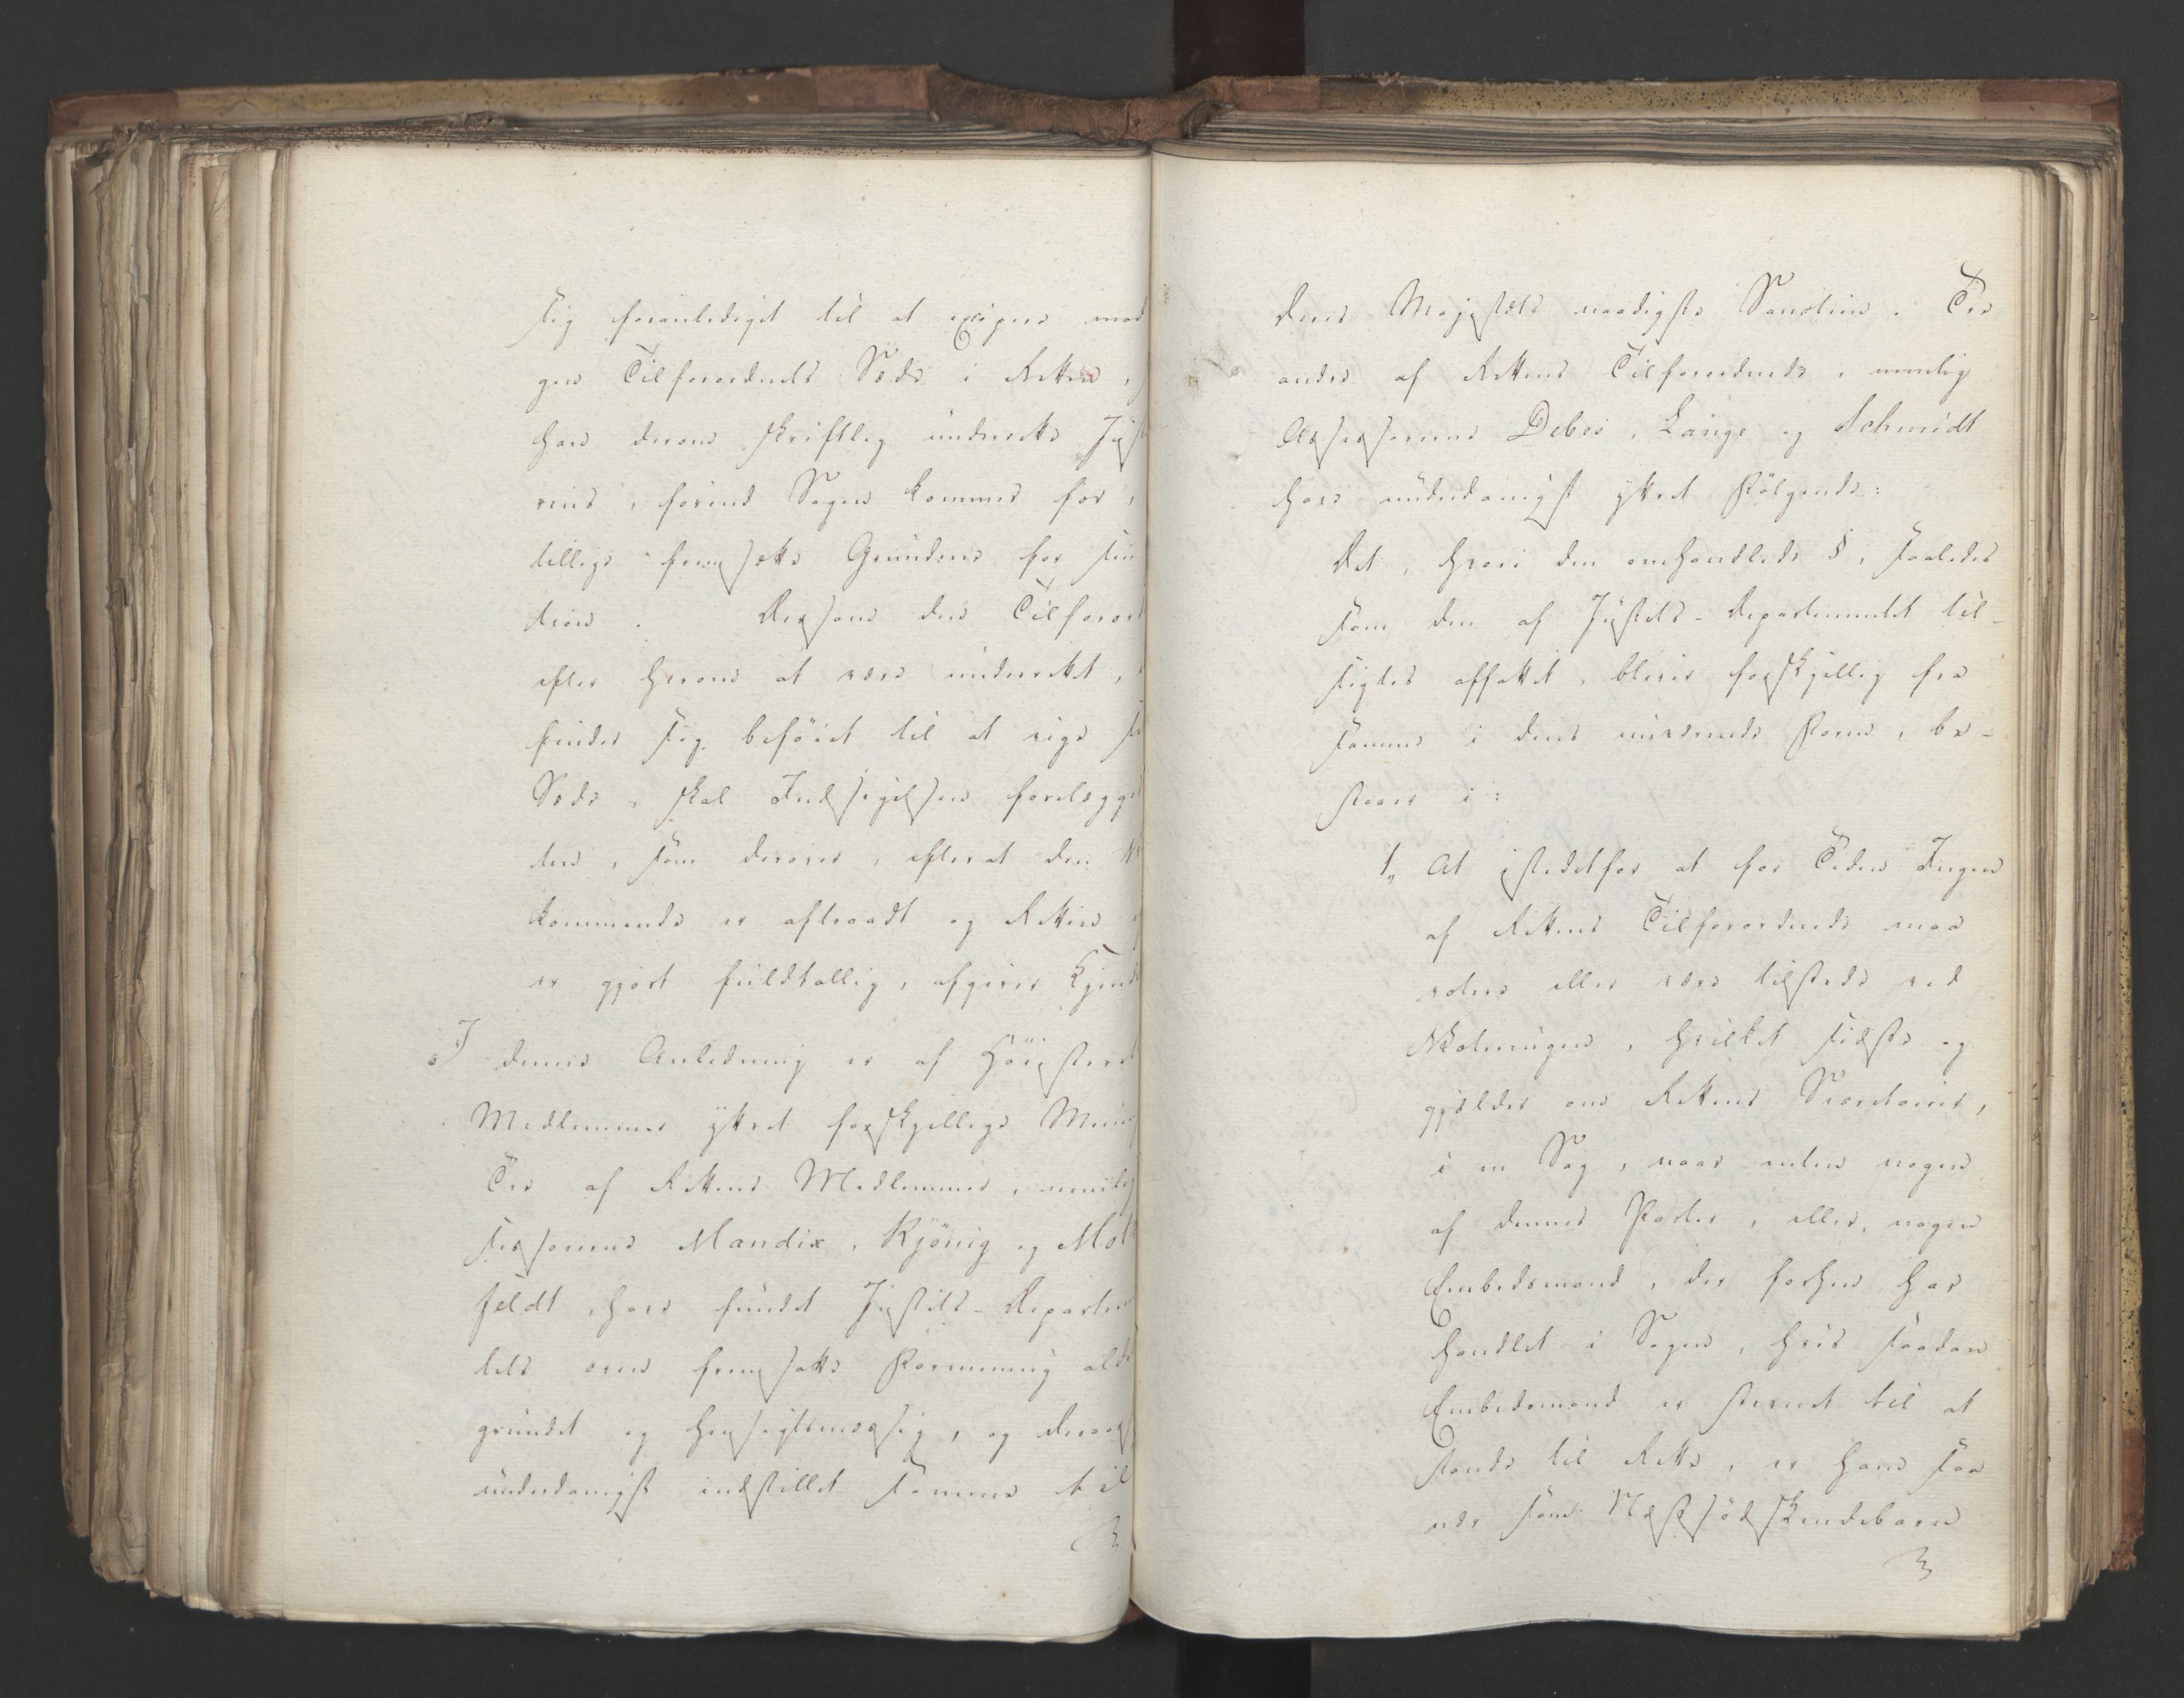 sig foranlediget til at excipere mod
gen Tilforordnets Sæde i Retten,
han derom skriftlig underrette Just
rius, forend Sagen kommer for,
tillige fremsætte Grundene for sin
tion. Dersom den Tilforor
efter herom at være underrettet,
finder sig beføiet til at vige s
Sæde, skal Indsigelsen forelægge
ten, som derover, efterat den V
kommende er aftraadt og Retten
er gjort fuldtallig, afgiver Kjend
I denne Anledning er af Höiesteret
Medlemmer yttret forskjellige Mening
Tre af Rettens Medlemmer, nemlig
sessorerne Mandix, Kjönig og Mot
feldt, have fundet Justits-Departem
tets oven fremsatte Formening alde
grundet og hensigtsmæssig, og deraf
underdanigst indstillet samme til
Deres Majestæts naadigste Sanction. Tre
andre af Rettens Tilforordnede, nemlig
Assessorerne Debes, Lange og Schmidt
have underdanigst yttret Fölgende:
Det, hvori den omhandlede §, saaledes
som den af Justits-Departementet til-
sigtes affattet, bliver forskjellig fra
samme i dens nuværende Form, be-
staaer i:
1, At istedetfor at for Tiden Ingen
af Rettens Tilforordnede maa
votere eller være tilstede ved
Voteringen, hvilket sidste og
gjælder om Rettens Secretairer,
i en Sag, naar enten nogen
af dennes Parter, eller nogen
Embedsmand, der forhen har
handlet i Sagen, hvis saadan
Embedsmand er stevnet til at
stande til Rette, er ham saa
nær som Næstsødskendebarn